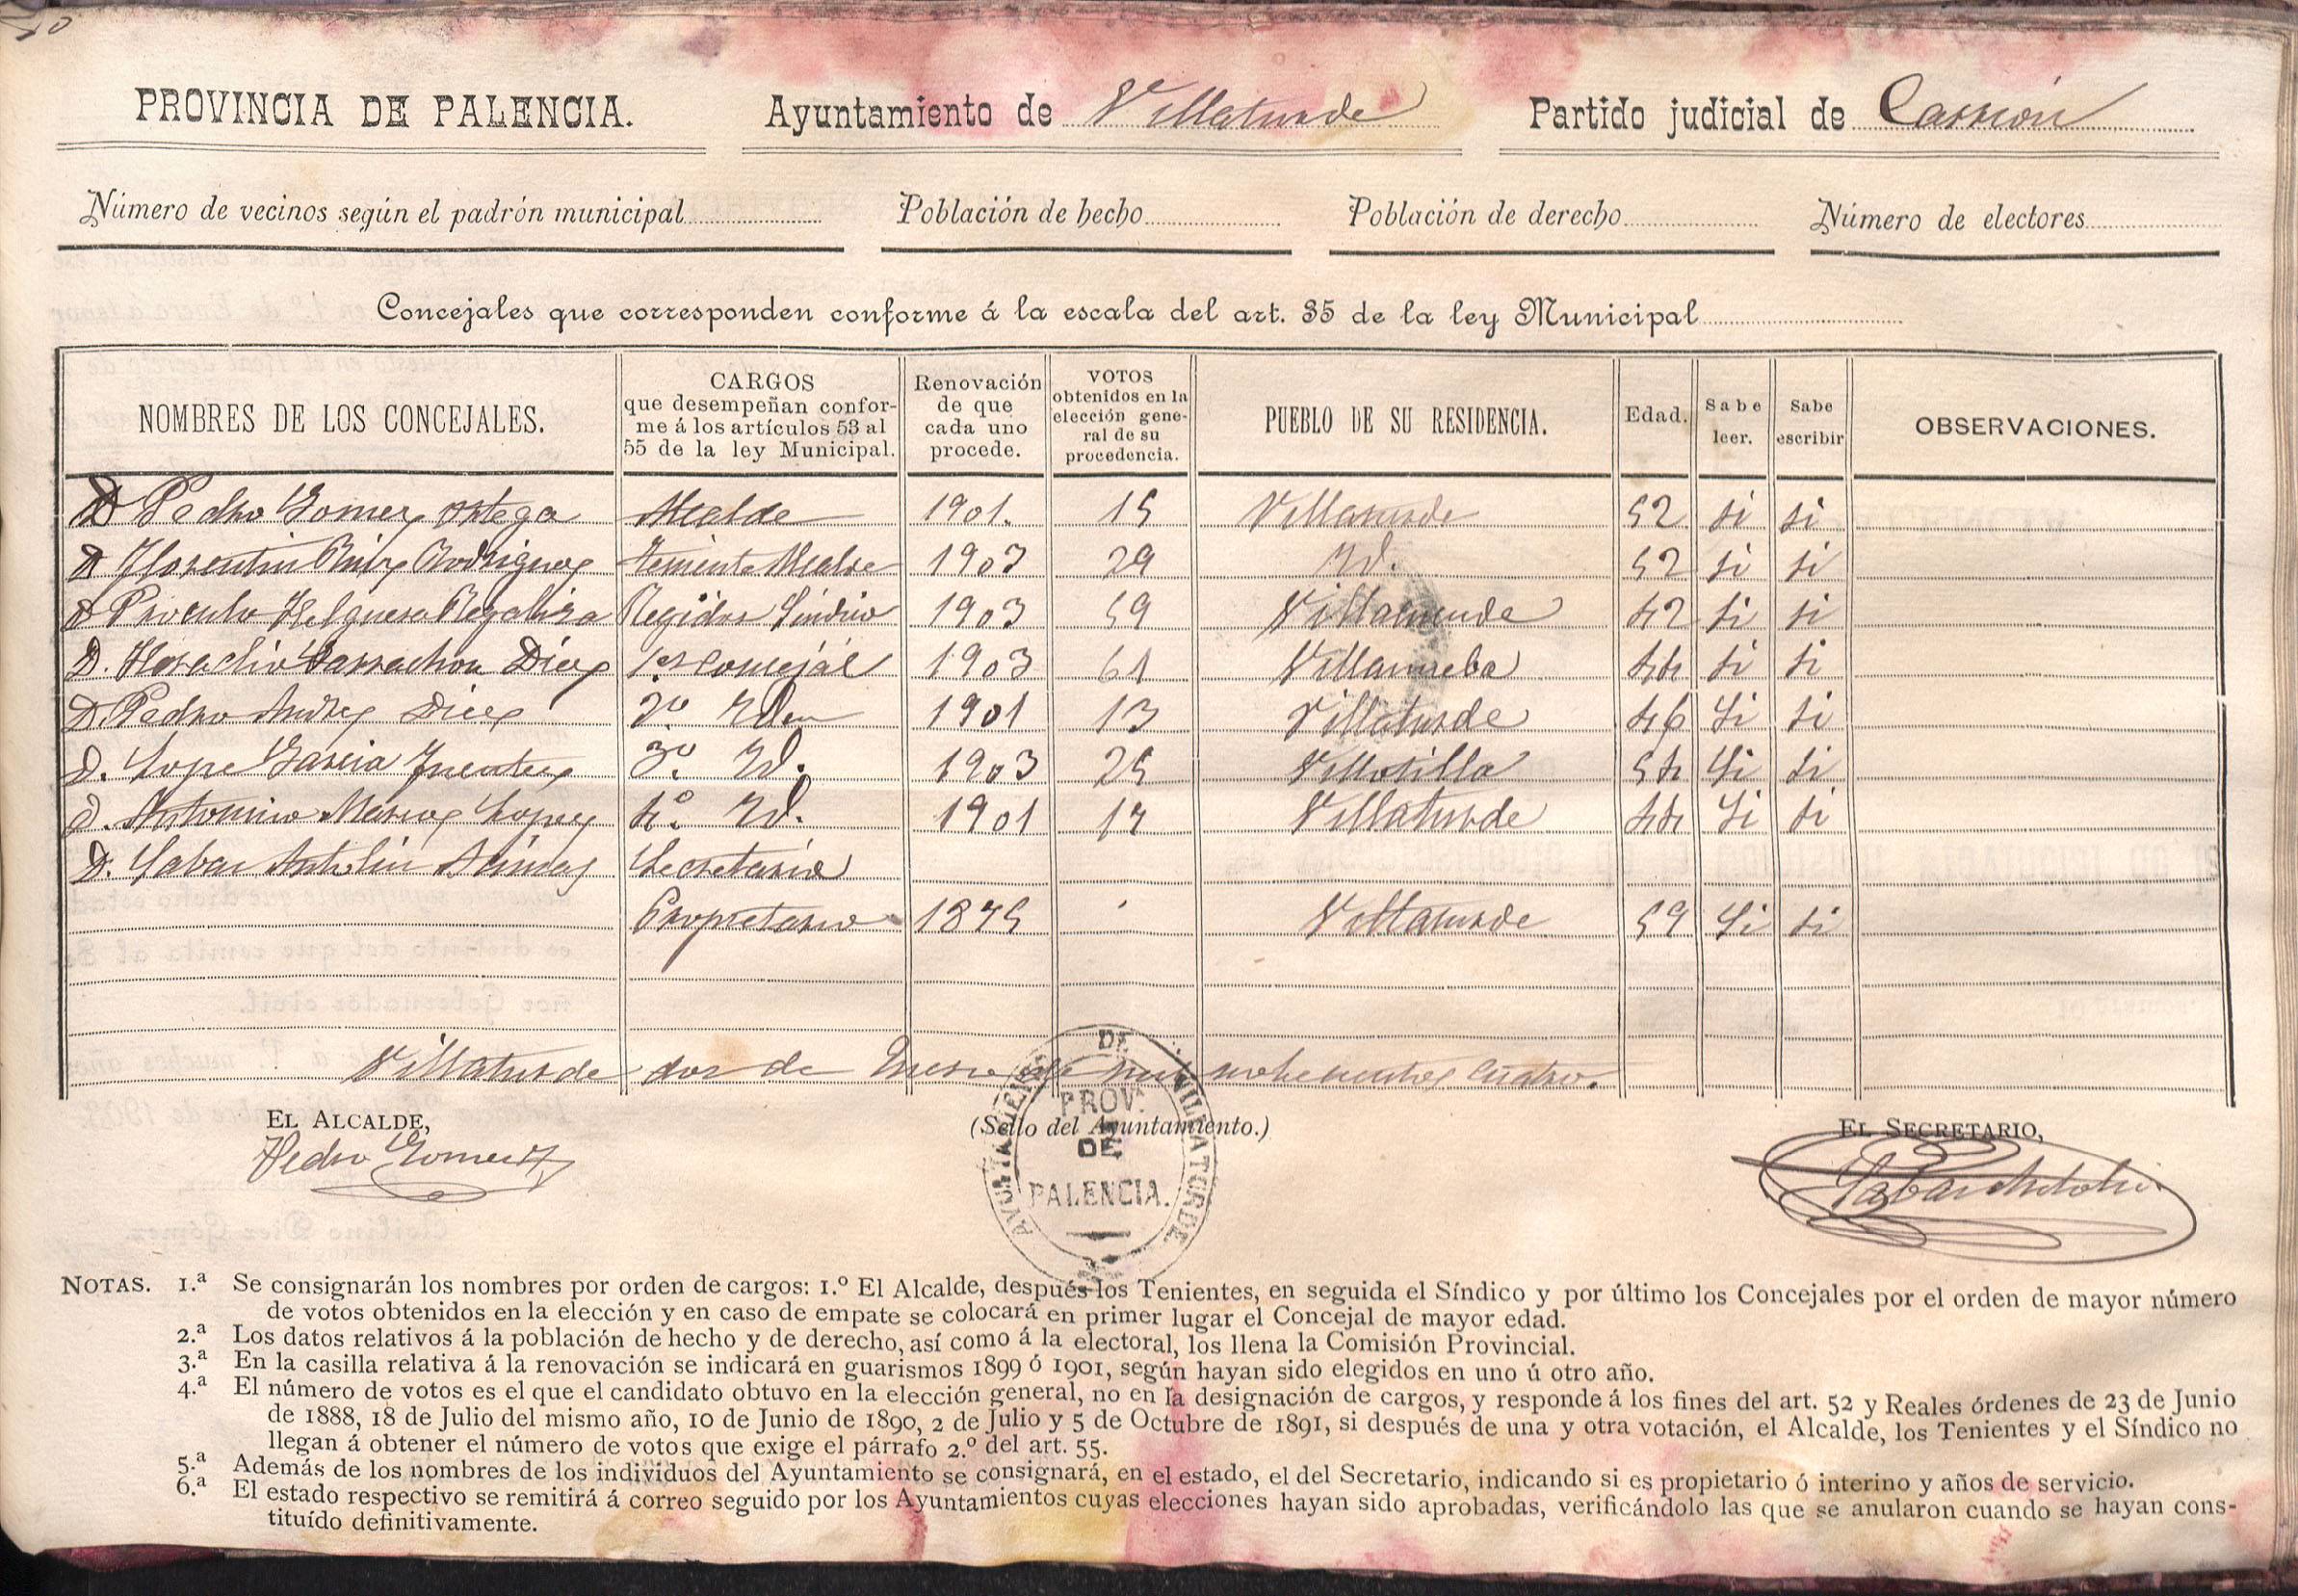 PROVINCIA DE PALENCIA. Ayuntamiento de Villaturde Partido judicial de Carrión
Número de vecinos según el padrón municipal Población de hecho Población de derecho Número de electores
Concejales que corresponden conforme á la escala del art. 35 de la ley Municipal
NOMBRES DE LOS CONCEJALES. CARGOS que desempeñan confor- me á los artículos 53 al 55 de la ley Municipal. Renovación de que cada uno procede. VOTOS obtenidos en la elección gene- ral de su procedencia. PUEBLO DE SU RESIDENCIA. Edad. Sabe leer. Sabe escribir OBSERVACIONES.
D Pedro Gomez Ortega Alcalde 1901. 15 Villaturde 52 si si
D Florentin Ruiz Rodriguez teniente Alcalde 1903 29 Id. 52 si si
D Proculo Helguera Regidor Sindico 1903 59 42 si si
D. Heraclio Barrachon Diez 1er Concejal 1903 61 Villanueba 44 si si
D. Pedro Andrez Diez 2º Idem 1901 13 Villaturde 46 Si si
D. Lope Garcia Fuentes 3º. Id. 1903 25 Villotilla 54 Si si
D. Antonino Merino Lopez 4º. Id. 1901 17 Villaturde 44 Si si
D. Sabas Antolin Secretario
Propietario 1875 Villaturde 59 Si si
Villaturde dos de Enero de mil nobecientos cuatro.
EL ALCALDE, (Sello del Ayuntamiento.) EL SECRETARIO,
Pedro Gomez Sabas Antolin
AYUNTAMIENTO DE VILLATURDE
PROV.
DE
PALENCIA.
NOTAS. 1.ª Se consignarán los nombres por orden de cargos: 1.º El Alcalde, después los Tenientes, en seguida el Síndico y por último los Concejales por el orden de mayor número
de votos obtenidos en la elección y en caso de empate se colocará en primer lugar el Concejal de mayor edad.
2.ª Los datos relativos á la población de hecho y de derecho, así como á la electoral, los llena la Comisión Provincial.
3.ª En la casilla relativa á la renovación se indicará en guarismos 1899 ó 1901, según hayan sido elegidos en uno ú otro año.
4.ª El número de votos es el que el candidato obtuvo en la elección general, no en la designación de cargos, y responde á los fines del art. 52 y Reales órdenes de 23 de Junio
de 1888, 18 de Julio del mismo año, 10 de Junio de 1890, 2 de Julio y 5 de Octubre de 1891, si después de una y otra votación, el Alcalde, los Tenientes y el Síndico no
llegan á obtener el número de votos que exige el párrafo 2.º del art. 55.
5.ª Además de los nombres de los individuos del Ayuntamiento se consignará, en el estado, el del Secretario, indicando si es propietario ó interino y años de servicio.
6.ª El estado respectivo se remitirá á correo seguido por los Ayuntamientos cuyas elecciones hayan sido aprobadas, verificándolo las que se anularon cuando se hayan cons-
tituído definitivamente.